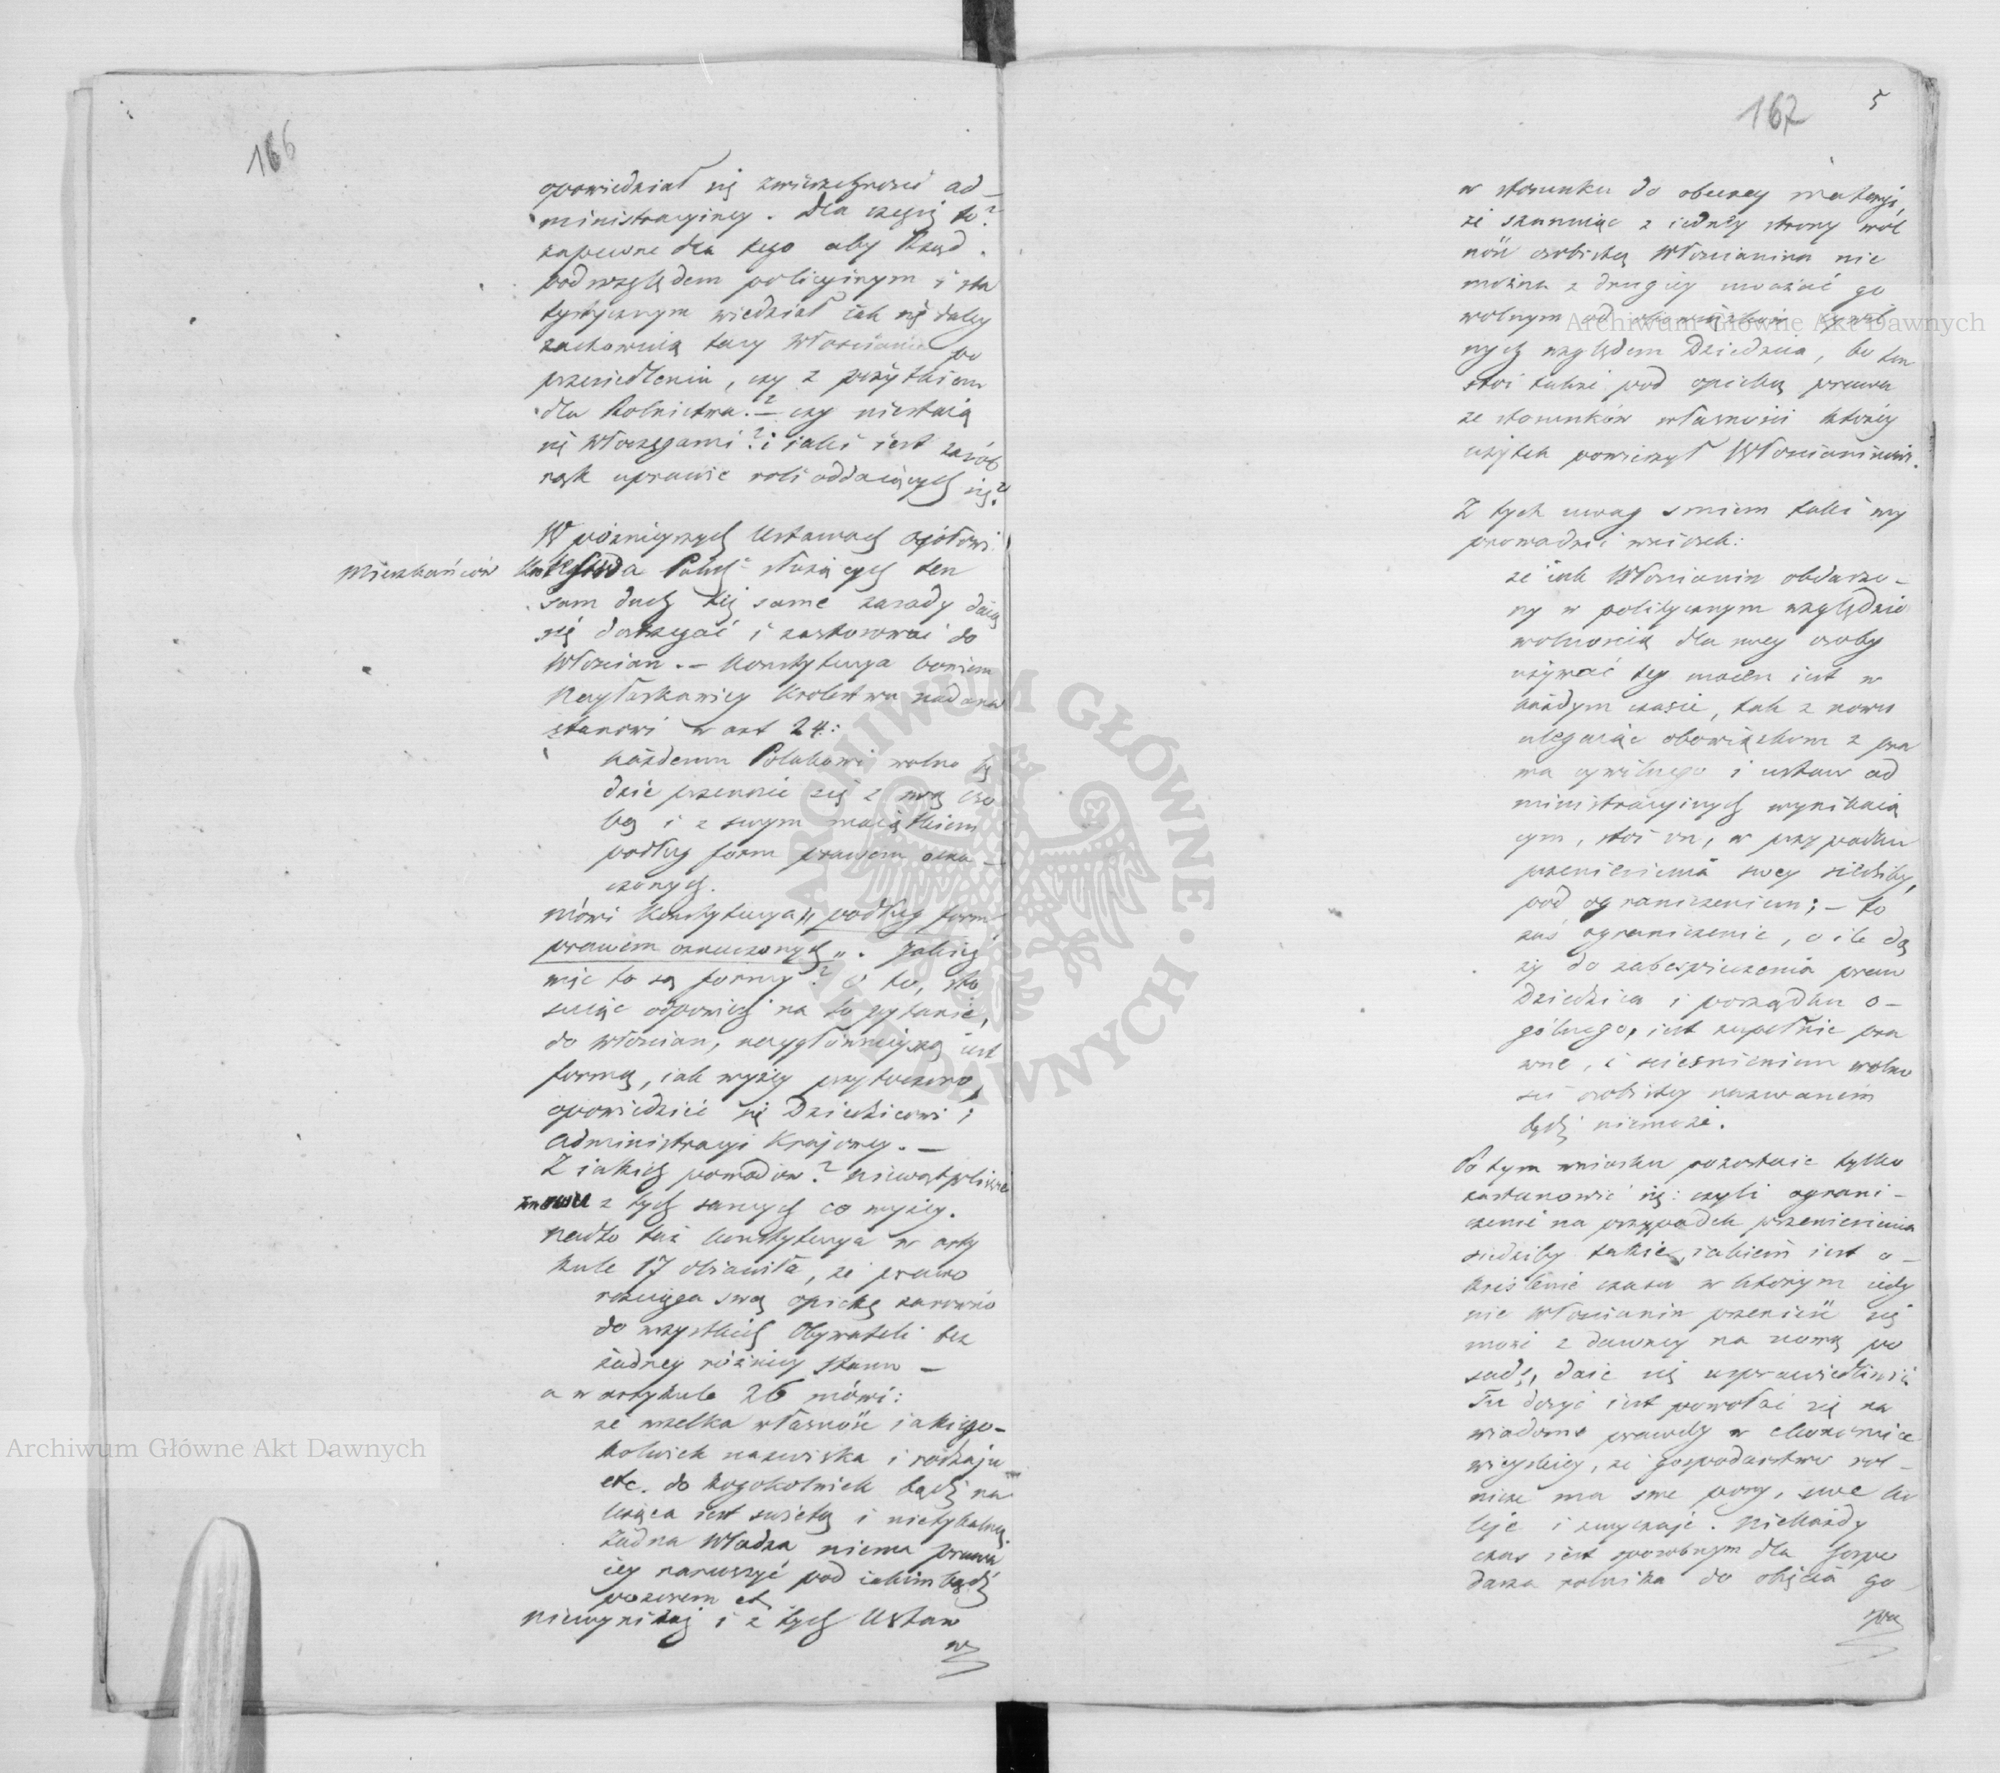 166
opowiedział się zwierzchności ad-
ministracyiney. Dla czegóż to?
zapewne dla tego aby Rząd
pod względem policyinym i sta
tystycznym wiedział iak się daley
zachowuią tacy Włościanie po
przesiedleniu, czy z pożytkiem
dla Rolnictwa? – czy niestaią
się włóczęgami? i iaki iest zasób
rąk uprawie roli oddaiących się?
W poźnieyszych Ustawach ogółowi
Mieszkańców Polski służących ten
sam duch też same zasady daią
się dostrzegać i zastosować do
Włościan. – Konstytucya bowiem
Nayłaskawiey Królestwu nadana
stanowi w art 24:
każdemu Polakowi wolno bę
dzie przenieść się z swą oso
bą i z swym maiątkiem
podług form prawem ozna –
czonych.
mówi Konstytucya „podług form
prawem oznaczonych„. Jakież
więc to są formy? o to, sto
suiąc odpowiedź na to pytanie,
do włościan, naygłównieyszą iest
formą, iak wyżey przytoczono,
opowiedzieć się Dziedzicowi i
Administracyi Krajowey. –
Z iakich powodów? niewątpliwie
znowu z tych samych co wyżey.
Nadto taż Konstytucya w arty
kule 17 obiawiła, że prawo
rozciąga swą opiekę zarówno
do wszystkich Obywateli bez
żadney różnicy stanu –
a w artykule 26 mówi:
że wszelka własność iakiego-
kolwiek nazwiska i rodzaju
etc. do kogokolwiek bądź na
leżąca iest świętą i nietykalną
żadna Władza niema prawa
iey naruszyć pod iakimbądź
pozorem etc
niewynikaż i z tych Ustaw
w
167
5
w stosunku do obecney materyi,
że szanuiąc z iedney strony wol
ność osobistą Włościanina nie
można z drugiey uważać go
wolnym od obowiązków cywil
nych względem Dziedzica, bo ten
stoi także pod opieką prawa
ze stosunków własności którey
użytek powierzył Włościaninowi.
Z tych uwag smiem taki wy
prowadzić wniosek:
że iak Włościanin obdarzo –
ny w politycznym względzie
wolnością dla swey osoby
używać tey mocen iest w
każdym czasie, tak z nowu
ulegaiąc obowiązkom z pra
wa cywilnego i ustaw ad
ministracyinych wynikaią
cym, stoi on, w przypadku
przeniesienia swey siedziby,
pod ograniczeniem; – to
zaś ograniczenie, o ile dą
ży do zabespieczenia praw
Dziedzica i porządku o –
gólnego, iest zupełnie pra
wne, i scieśnieniem wolno
ści osobistey nazwanem
bydź niemoże.
Po tym wniosku pozostaie tylko
zastanowić się: czyli ograni –
czenie na przypadek przeniesienia
siedziby takie, iakiem iest o –
kreślenie czasu w którym iedy
nie Włościanin przenieść się
może z dawney na nową po
sadę, daie się usprawiedliwić
Tu dosyć iest powołać się na
wiadome prawdy w ekonomice
wieyskiey, że gospodarstwo rol –
nicze ma swe pory, swe ko
leje i zwyczaje. Niekażdy
czas iest sposobnym dla Gospo
darza rolnika do obięcia go –
spo